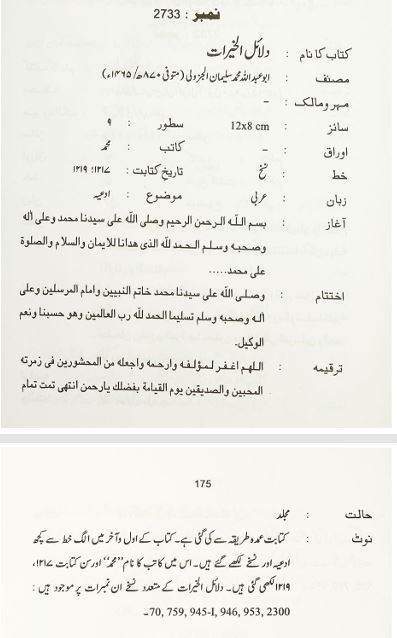 نمبر : 2733
کتاب کا نام : دلائل الخیرات
مصنف : ابو عبداللہ محمد سلیمان الجزولی (متوفی ۸۷۰ھ/۱۴۶۵ء)
مہر ومالک : -
سائز : 12x8 cm سطور : ۹
اوراق : - کاتب : محمد
خط : نسخ تاریخ کتابت : ۱۲۱۷؛ ۱۲۱۹
زبان : عربی موضوع : ادعیہ
آغاز : بسم اللہ الرحمن الرحیم وصلی اللہ علی سیدنا محمد وعلی آلہ
وصحبہ وسلم الحمد للہ الذی ھدانا للایمان والسلام والصلوۃ
علی محمد.....
اختتام : وصلی اللہ علی سیدنا محمد خاتم النبیین وامام المرسلین وعلی
آلہ وصحبہ وسلم تسلیما الحمد للہ رب العالمین وھو حسبنا ونعم
الوکیل.
ترقیمہ : اللھم اغفر لمؤلفہ وارحمہ واجعلہ من المحشورین فی زمرتہ
المحبین والصدیقین یوم القیامۃ بفضلك یارحمن انتھی تمت تمام
175
حالت : مجلد
نوٹ : کتابت عمدہ طریقہ سے کی گئی ہے۔ کتاب کے اول و آخر میں الگ خط سے کچھ
ادعیہ اور نسخے لکھے گئے ہیں۔ اس میں کاتب کا نام ”محمد“ اور سن کتابت ۱۲۱۷،
۱۲۱۹ لکھی گئی ہیں۔ دلائل الخیرات کے متعدد نسخے ان نمبرات پر موجود ہیں :
70, 759, 945-I, 946, 953, 2300۔